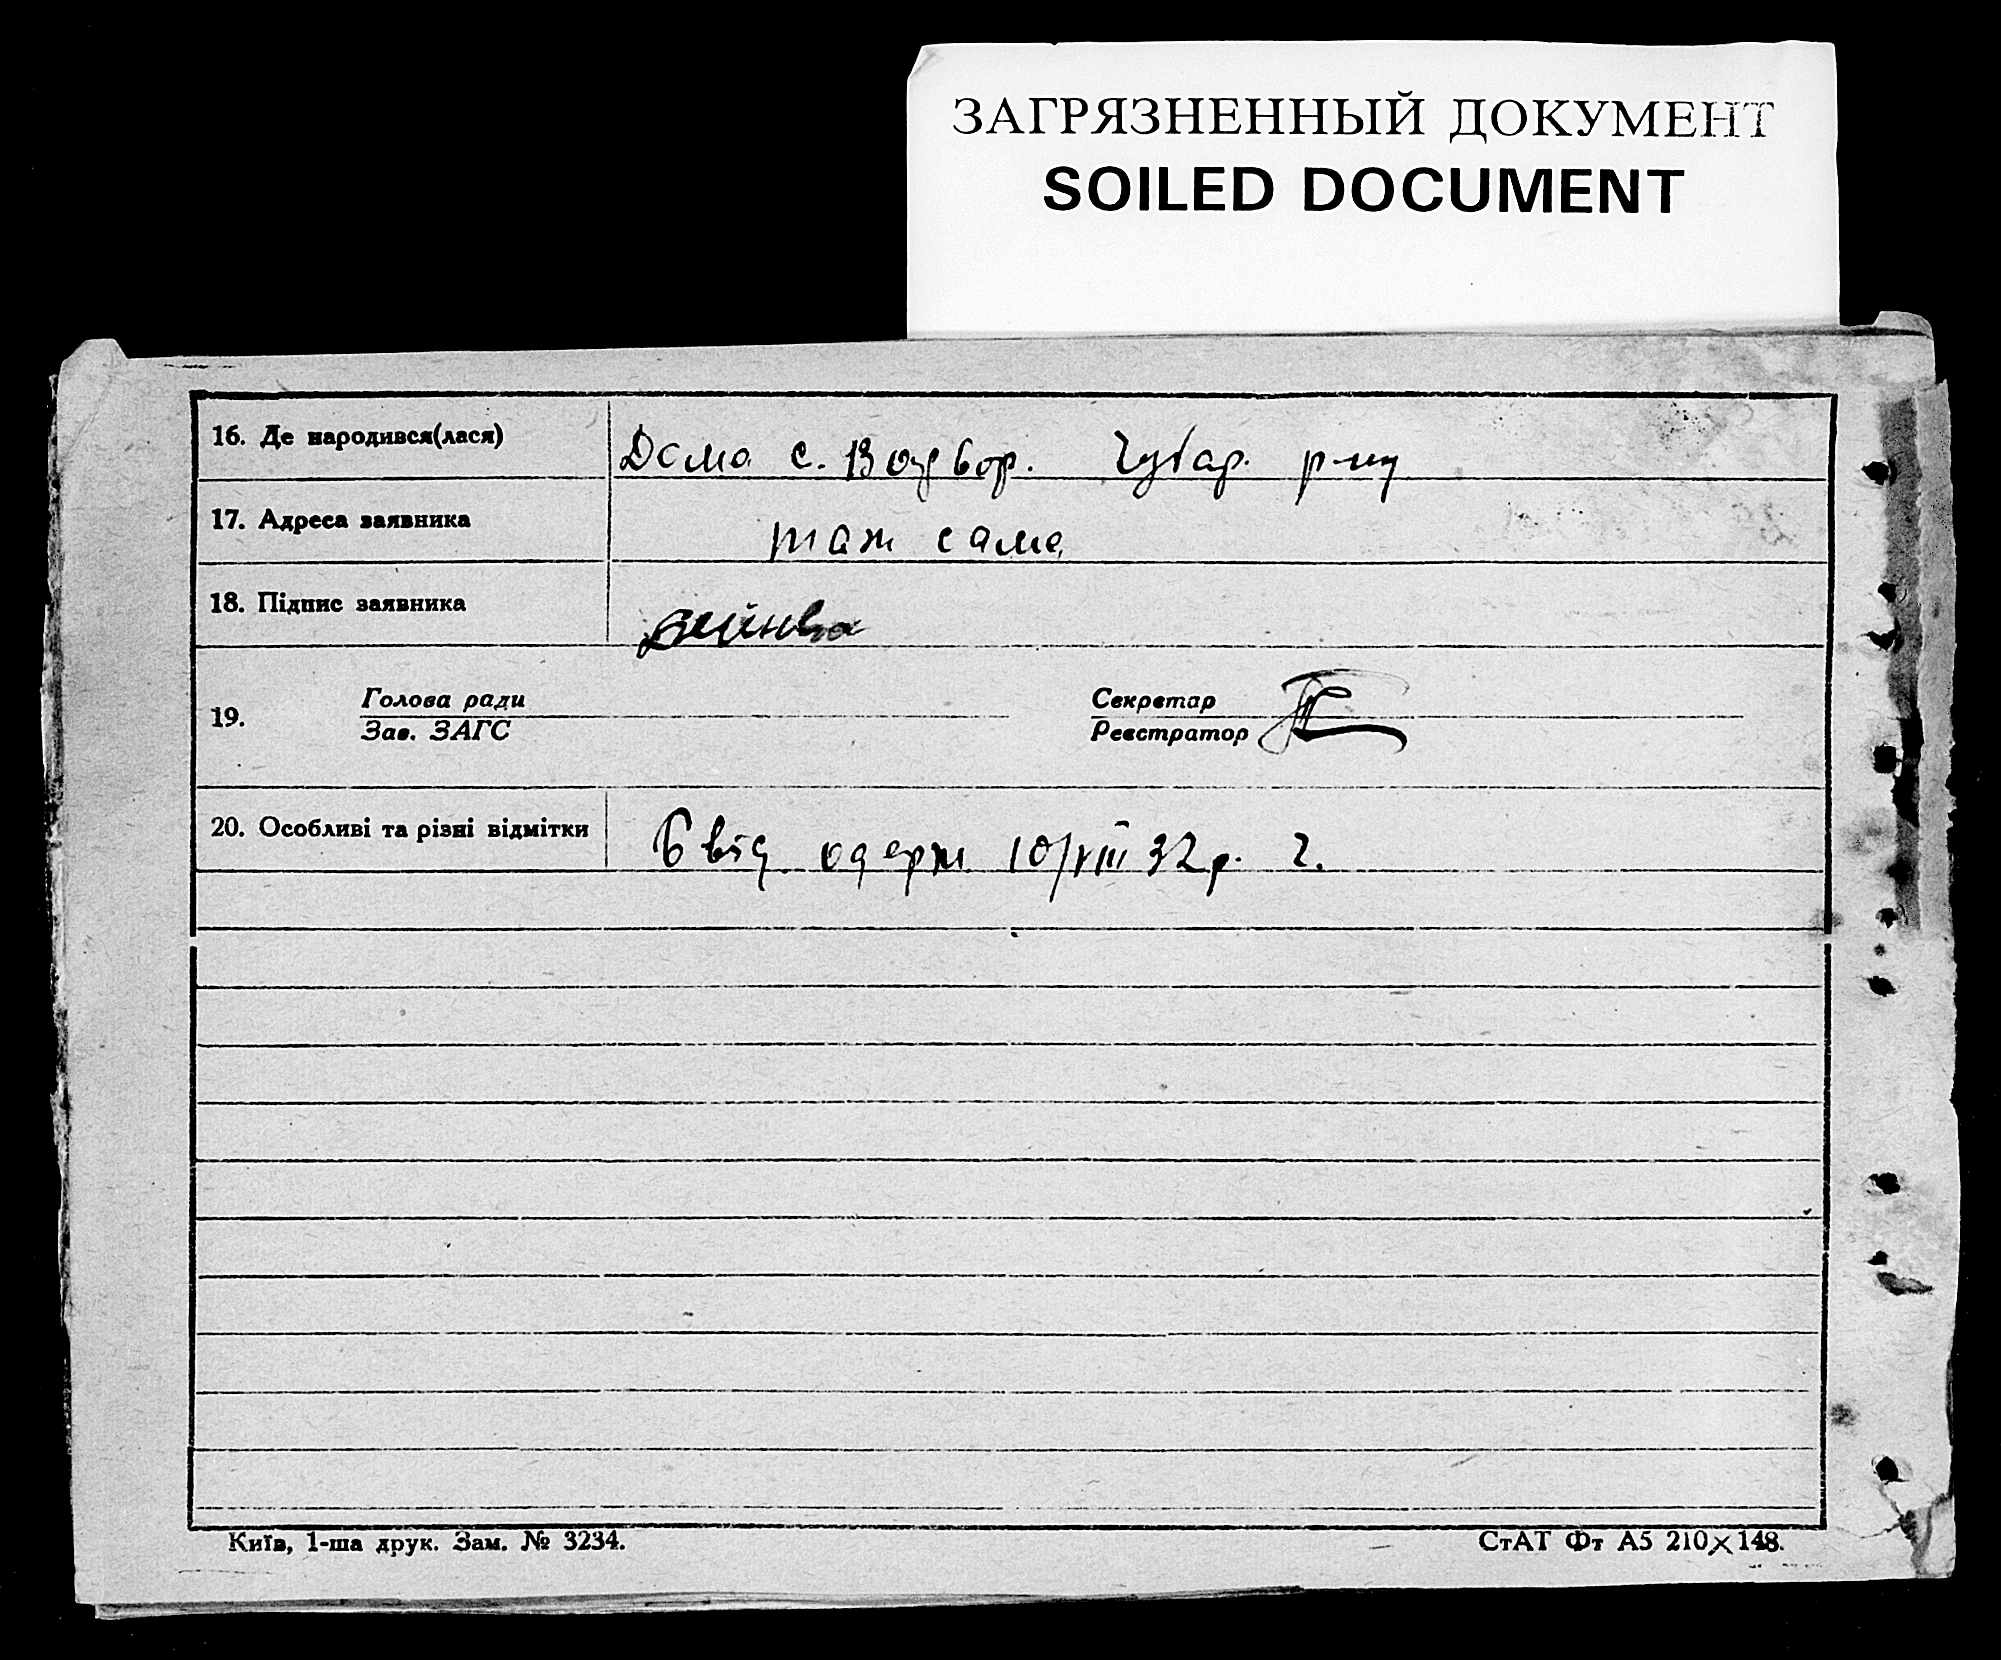 ЗАГРЯЗНЕННЫЙ ДОКУМЕНТ
SOILED DOCUMENT
16. Де народився(лася) Дома с. Воздвор. Чубар. р-ну
17. Адреса заявника таж сама
18. Підпис заявника
19. Голова ради Секретар
Зав. ЗАГС Реєстратор
20. Особливі та різні відмітки Свід одерж 10/VIII 32 р. Ч.
Київ, 1-ша друк. Зам. № 3234.
СтАТ Фт А5 210×148.